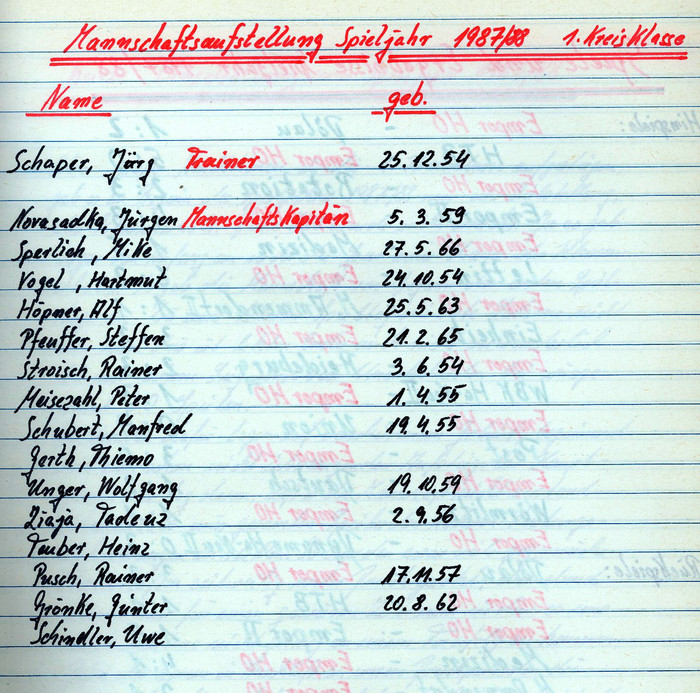 Mannschaftsaufstellung Spieljahr 1987/88 1. Kreisklasse
Name geb.
Schaper, Jürg Trainer 25.12.54
Novasadka, Jürgen Mannschaftskapitän 5. 3. 59
Sperlich, Mike 27. 5. 66
Vogel, Hartmut 24.10.54
Höpner, Alf 25. 5. 63
Pfeuffer, Steffen 21. 2. 65
Stroisch, Rainer 3. 6. 54
Meisezahl, Peter 1. 4. 55
Schubert, Manfred 19. 4. 55
Gerth, Thiemo
Unger, Wolfgang 19. 10. 59
Ziaja, Tadeuz 2. 9. 56
Tauber, Heinz
Pusch, Rainer 17. 11. 57
Grönke, Günter 20. 8. 62
Schindler, Uwe